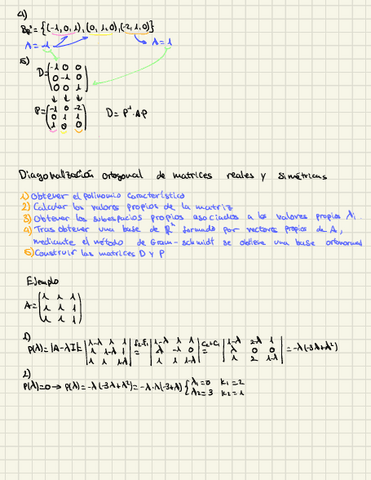 4)
B_R³ = {(-1,0,1), (0,1,0), (-2,1,0)}
λ=-1 λ=1
5)
D = (-1 0 0
0 -1 0
0 0 1)
P = (-1 0 -2
0 1 1
1 0 0) D = P⁻¹·A·P
Diagonalización ortogonal de matrices reales y simétricas
1) Obtener el polinomio característico
2) Calcular los valores propios de la matriz
3) Obtener los subespacios propios asociados a los valores propios λi
4) Tras obtener una base de R³ formado por vectores propios de A,
mediante el método de Gram-schmidt se obtiene una base ortonormal
5) Construir las matrices D y P
Ejemplo
A = (1 1 1
1 1 1
1 1 1)
1)
P(λ) = |A-λI| = |1-λ 1 1
1 1-λ 1
1 1 1-λ| = |1-λ 1 1
λ -λ 0
1 1 1-λ| = |1-λ 2-λ 1
λ 0 0
1 2 1-λ| = -λ(-3λ+λ²)
2)
P(λ)=0 → P(λ) = -λ(-3λ+λ²) = -λ·λ(-3+λ) { λ1=0 k1=2
λ2=3 k2=1